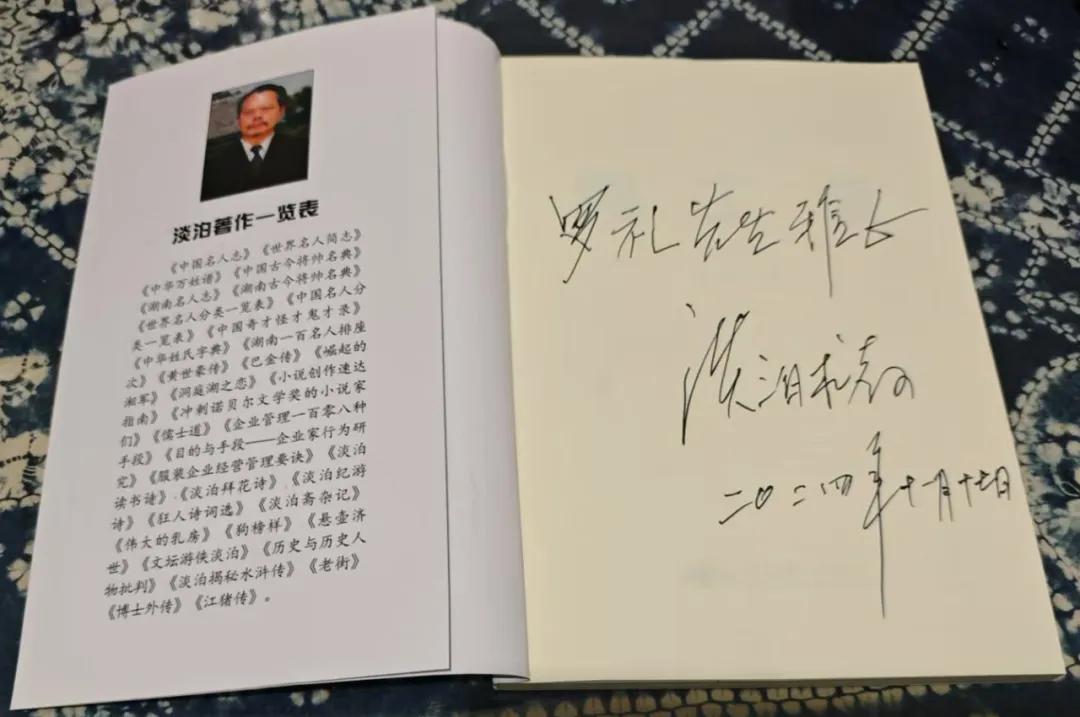 淡泊著作一览表
《中国名人志》《世界名人简志》
《中华万姓谱》《中国古今将帅名典》
《湖南名人志》《湖南古今将帅名典》
《世界名人分类一览表》《中国名人分
类一览表》《中国奇才怪才鬼才录》
《中华姓氏字典》《湖南一百名人排座
次》《黄世豪传》《巴金传》《崛起的
湘军》《洞庭湖之恋》《小说创作速达
指南》《冲刺诺贝尔文学奖的小说家
们》《儒士道》《企业管理一百零八种
手段》《目的与手段——企业家行为研
究》《服装企业经营管理要诀》《淡泊
读书诗》《淡泊拜花诗》《淡泊纪游
诗》《狂人诗词选》《淡泊斋杂记》
《伟大的乳房》《狗榜样》《悬壶济
世》《文坛游侠淡泊》《历史与历史人
物批判》《淡泊揭秘水浒传》《老街》
《博士外传》《江猪传》。
罗礼先生雅正
淡泊敬
二〇二四年十一月十七日